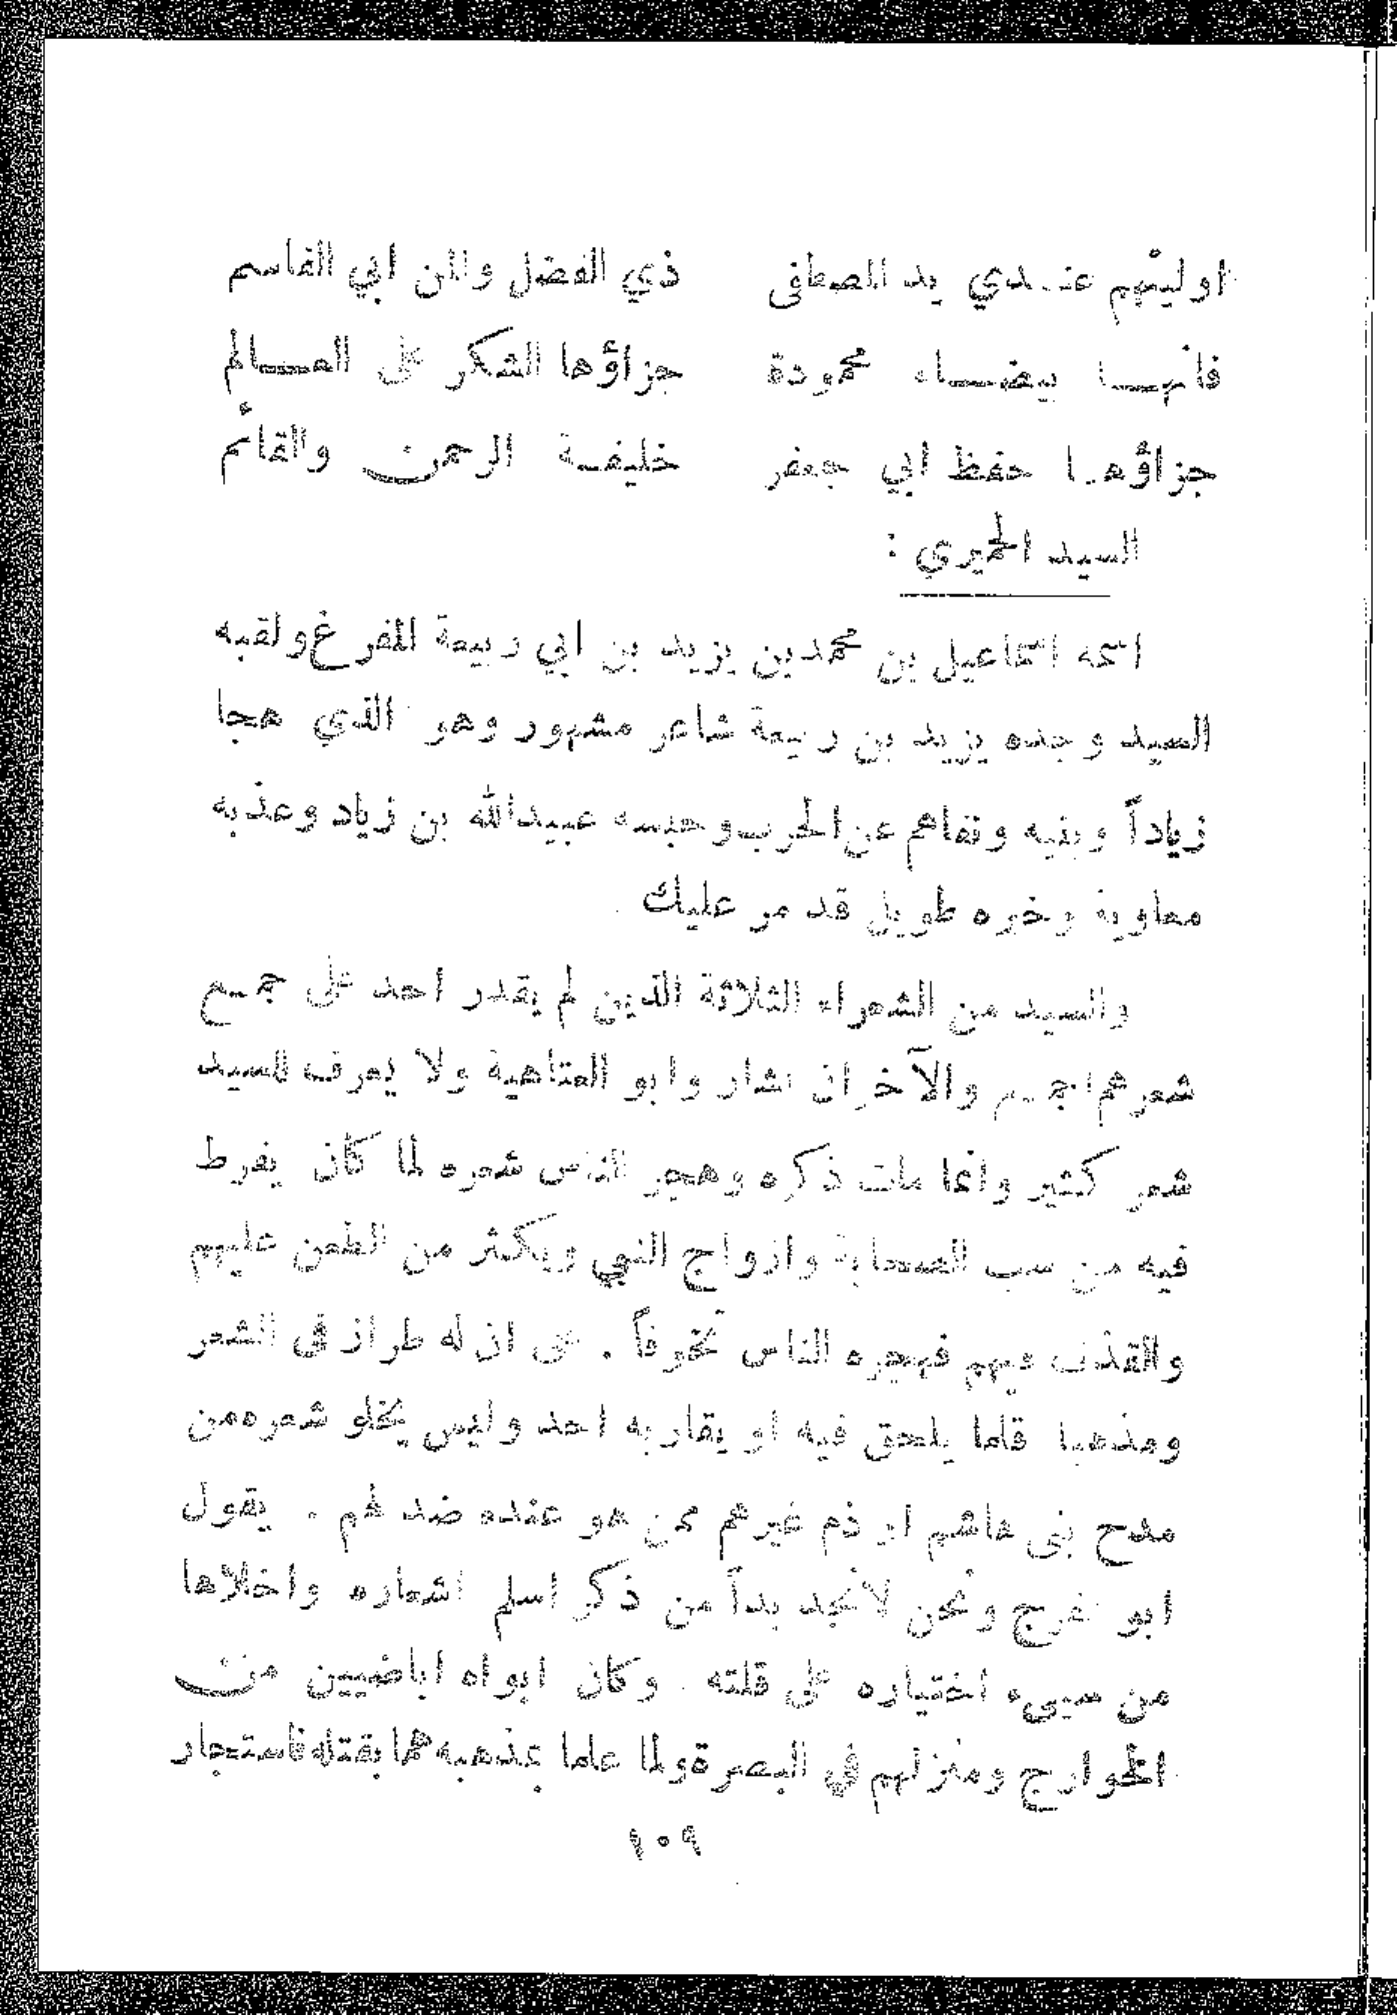 اوليتهم عندي يد المصطفى ذي الفضل والمن ابي القاسم
فانها بيضاء محمودة جزاؤها الشكر على العالم
جزاؤها حفظ ابي جعفر خليفة الرحمن والقائم
السيد الحميري :
اسمه اسماعيل بن محمد بن يزيد بن ابي ربيعة المفرغ ولقبه
السيد وجده يزيد بن ربيعة شاعر مشهور وهو الذي هجا
زياداً وبنيه ونفاهم عن الحرب وحبسه عبيدالله بن زياد وعذبه
معاوية وخبره طويل قد مر عليك .
والسيد من الشعراء الثلاثة الذين لم يقدر احد على جميع
شعرهم اجمع والآخران بشار وابو العتاهية ولا يعرف للسيد
شعر كثير وانما مات ذكره وهجر الناس شعره لما كان يفرط
فيه من سب الصحابة وازواج النبي ويكثر من الطعن عليهم
والقذف فيهم فهجره الناس تخوفاً . على ان له طراز في الشعر
ومذهبا قلما يلحق فيه او يقاربه احد وليس يخلو شعره من
مدح بني هاشم او ذم غيرهم ممن هو عنده ضد لهم . يقول
ابو الفرج ونحن لانجد بداً من ذكر اسلم اشعاره واخلاها
من سيىء اختياره على قلته . وكان ابواه اباضيين من
الخوارج ومنزلهم في البصرة ولما علما بمذهبه هما بقتله فاستجار
١٠٩